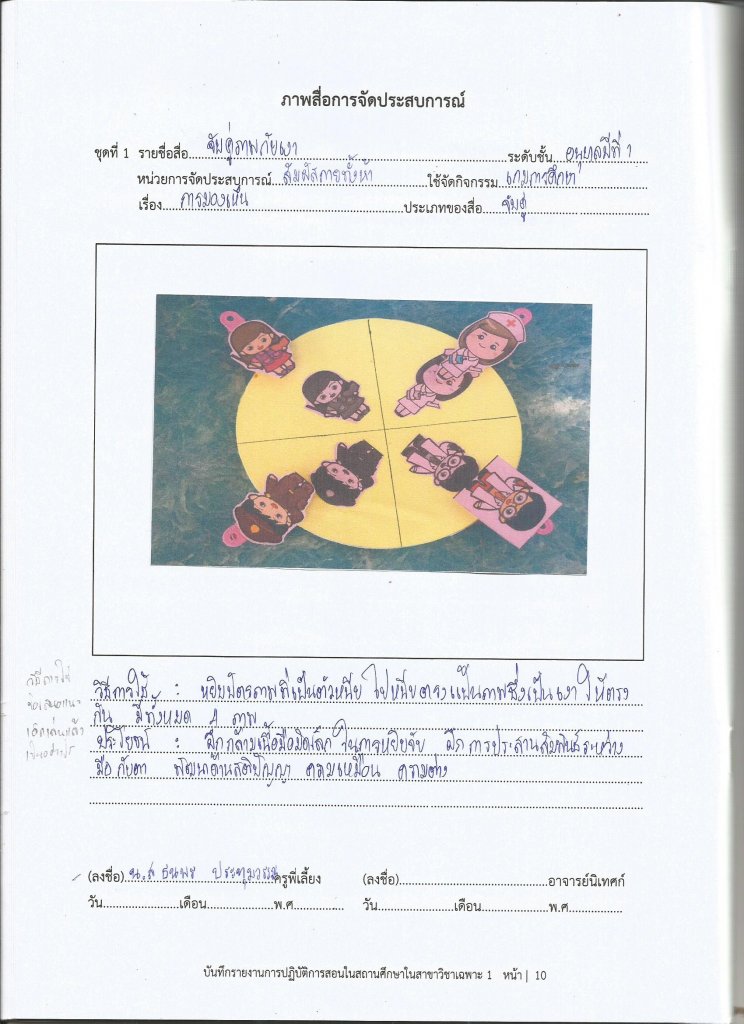 ภาพสื่อการจัดประสบการณ์
ชุดที่ 1 รายชื่อสื่อ จับคู่ภาพกับเงา ระดับชั้น อนุบาลปีที่ 1
หน่วยการจัดประสบการณ์ สัมผัสกายทั้งห้า ใช้จัดกิจกรรม เกมการศึกษา
เรื่อง การมองเห็น ประเภทของสื่อ จับคู่
วิธีการใช้ : หยิบบัตรภาพที่เป็นตัวหนีบ ไปหนีบ ให้ตรง
กัน มีทั้งหมด 4 ภาพ
ประโยชน์ : ฝึกกล้ามเนื้อมือมัดเล็ก ในการหยิบจับ ฝึกการประสานสัมพันธ์ระหว่าง
มือกับตา พัฒนาด้านสติปัญญา ความเหมือน ความต่าง
วิธีการใช้
(ลงชื่อ) น.ส ธนพร ครูพี่เลี้ยง (ลงชื่อ) อาจารย์นิเทศก์
วัน เดือน พ.ศ วัน เดือน พ.ศ.
บันทึกรายงานการปฏิบัติการสอนในสถานศึกษาในสาขาวิชาเฉพาะ 1 หน้า | 10